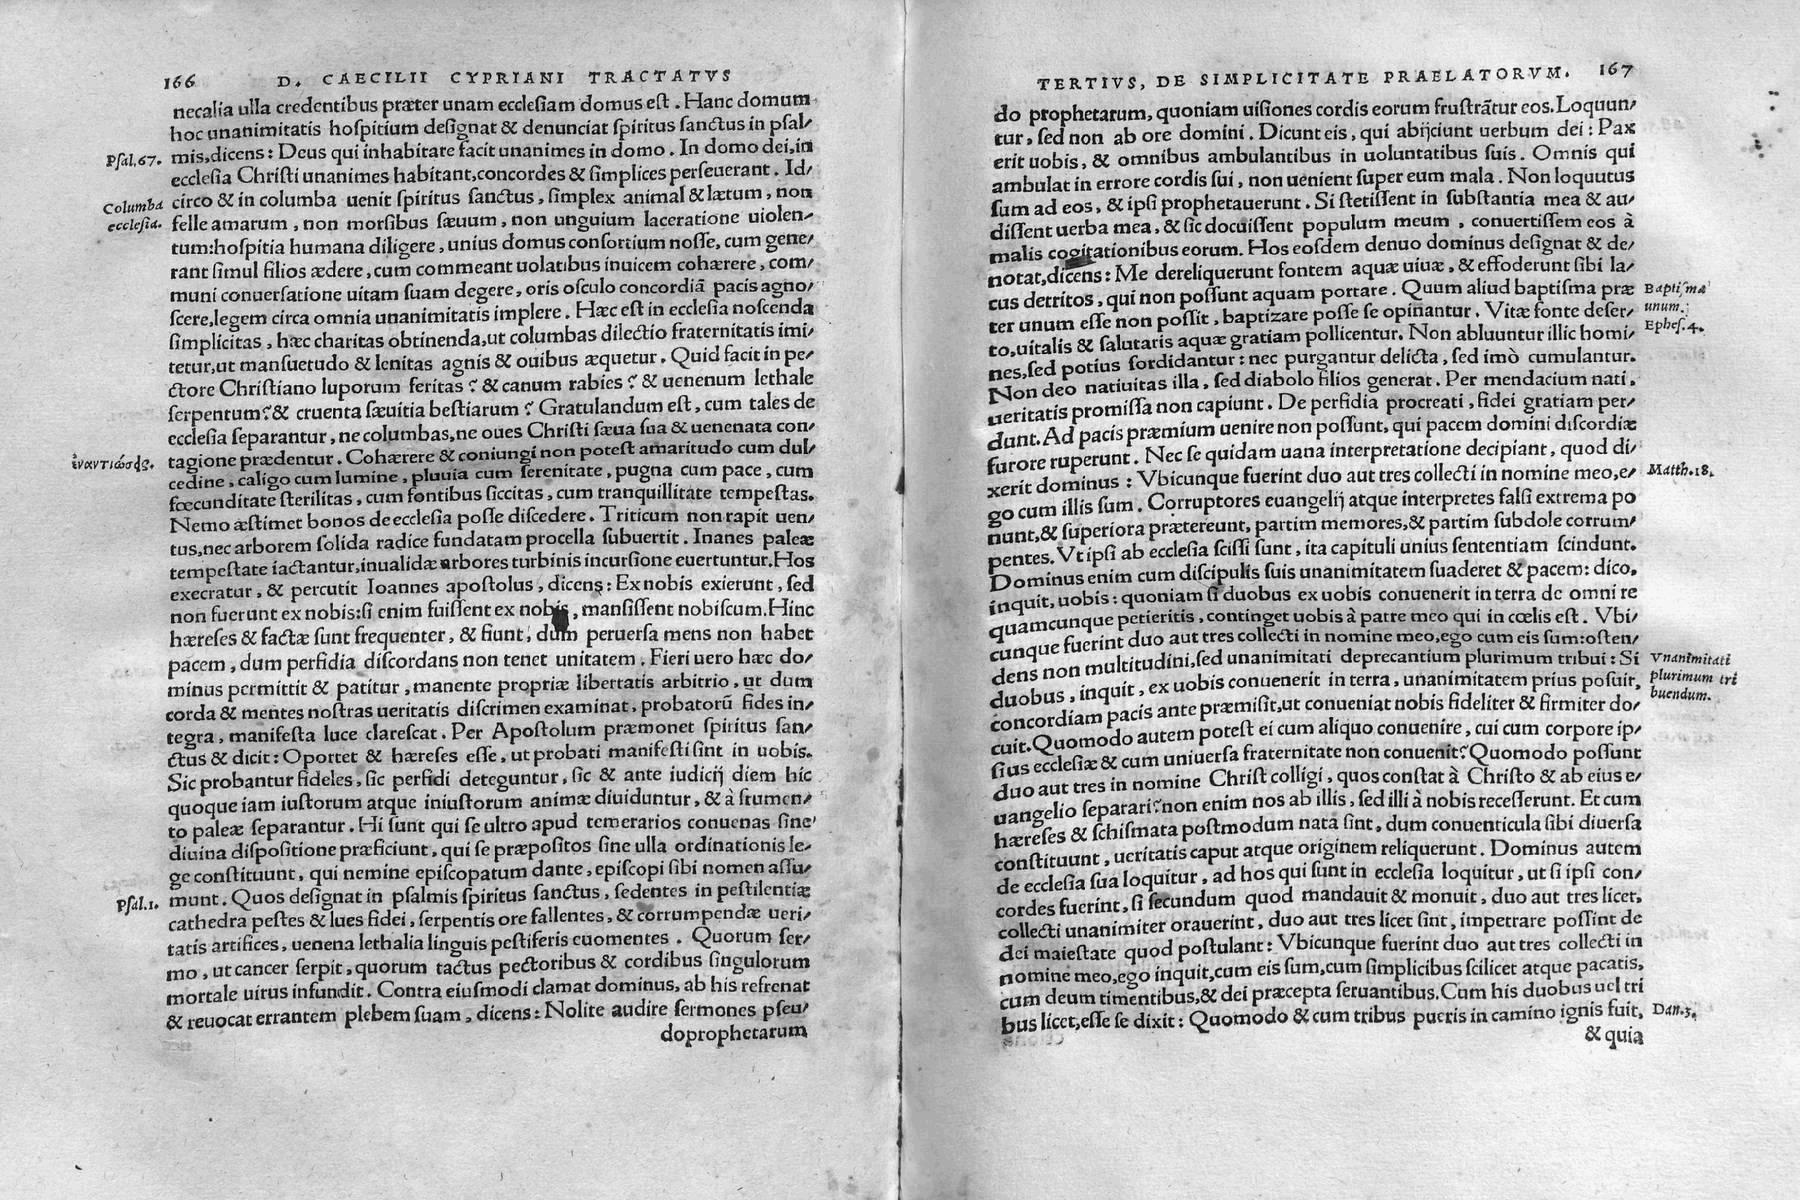 166 D. CAECILII CYPRIANI TRACTATVS
necalia ulla credentibus præter unam ecclesiam domus est. Hanc domum
hoc unanimitatis hospitium designat & denunciat spiritus sanctus in psal/
Psal.67. mis,dicens: Deus qui inhabitare facit unanimes in domo. In domo dei,in
ecclesia Christi unanimes habitant,concordes & simplices perseuerant. Id/
Columba circo & in columba uenit spiritus sanctus, simplex animal & lætum, non
ecclesia. felle amarum, non morsibus sæuum, non unguium laceratione uiolen/
tum:hospitia humana diligere, unius domus consortium nosse, cum gene/
rant simul filios ædere, cum commeant uolatibus inuicem cohærere, com/
muni conuersatione uitam suam degere, oris osculo concordiā pacis agno/
scere,legem circa omnia unanimitatis implere. Hæc est in ecclesia noscenda
simplicitas, hæc charitas obtinenda,ut columbas dilectio fraternitatis imi/
tetur,ut mansuetudo & lenitas agnis & ouibus æquetur. Quid facit in pe/
ctore Christiano luporum feritas? & canum rabies? & uenenum lethale
serpentum? & cruenta sæuitia bestiarum? Gratulandum est, cum tales de
ecclesia separantur, ne columbas,ne oues Christi sæua sua & uenenata con/
ἐναντιώσεις. tagione prædentur. Cohærere & coniungi non potest amaritudo cum dul/
cedine, caligo cum lumine, pluuia cum serenitate, pugna cum pace, cum
fœcunditate sterilitas, cum fontibus siccitas, cum tranquillitate tempestas.
Nemo æstimet bonos de ecclesia posse discedere. Triticum non rapit uen/
tus,nec arborem solida radice fundatam procella subuertit. Inanes paleæ
tempestate iactantur,inualidæ arbores turbinis incursione euertuntur.Hos
execratur, & percutit Ioannes apostolus, dicens: Ex nobis exierunt, sed
non fuerunt ex nobis:si enim fuissent ex nobis, mansissent nobiscum.Hinc
hæreses & factæ sunt frequenter, & fiunt, dum peruersa mens non habet
pacem, dum perfidia discordans non tenet unitatem. Fieri uero hæc do/
minus permittit & patitur, manente propriæ libertatis arbitrio, ut dum
corda & mentes nostras ueritatis discrimen examinat, probatorū fides in/
tegra, manifesta luce clarescat. Per Apostolum præmonet spiritus san/
ctus & dicit: Oportet & hæreses esse, ut probati manifesti sint in uobis.
Sic probantur fideles, sic perfidi deteguntur, sic & ante iudicij diem hic
quoque iam iustorum atque iniustorum animæ diuiduntur, & à frumen/
to paleæ separantur. Hi sunt qui se ultro apud temerarios conuenas sine
diuina dispositione præficiunt, qui se præpositos sine ulla ordinationis le/
ge constituunt, qui nemine episcopatum dante, episcopi sibi nomen assu/
Psal.1. munt. Quos designat in psalmis spiritus sanctus, sedentes in pestilentiæ
cathedra pestes & lues fidei, serpentis ore fallentes, & corrumpendæ ueri/
tatis artifices, uenena lethalia linguis pestiferis euomentes. Quorum ser/
mo, ut cancer serpit, quorum tactus pectoribus & cordibus singulorum
mortale uirus infundit. Contra eiusmodi clamat dominus, ab his refrenat
& reuocat errantem plebem suam, dicens: Nolite audire sermones pseu/
doprophetarum
TERTIVS, DE SIMPLICITATE PRAELATORVM. 167
do prophetarum, quoniam uisiones cordis eorum frustrātur eos.Loquun/
tur, sed non ab ore domini. Dicunt eis, qui abijciunt uerbum dei: Pax
erit uobis, & omnibus ambulantibus in uoluntatibus suis. Omnis qui
ambulat in errore cordis sui, non uenient super eum mala. Non loquutus
sum ad eos, & ipsi prophetauerunt. Si stetissent in substantia mea & au/
dissent uerba mea, & sic docuissent populum meum, conuertissem eos à
malis cogitationibus eorum. Hos eosdem denuo dominus designat & de/
notat,dicens: Me dereliquerunt fontem aquæ uiuæ, & effoderunt sibi la/
cus detritos, qui non possunt aquam portare. Quum aliud baptisma præ Baptisma
ter unum esse non possit, baptizare posse se opinantur. Vitæ fonte deser/ unum.
to,uitalis & salutaris aquæ gratiam pollicentur. Non abluuntur illic homi/ Ephes.4.
nes,sed potius sordidantur: nec purgantur delicta, sed imò cumulantur.
Non deo natiuitas illa, sed diabolo filios generat. Per mendacium nati,
ueritatis promissa non capiunt. De perfidia procreati, fidei gratiam per/
dunt. Ad pacis præmium uenire non possunt, qui pacem domini discordiæ
furore ruperunt. Nec se quidam uana interpretatione decipiant, quod di/
xerit dominus: Vbicunque fuerint duo aut tres collecti in nomine meo,e/ Matth.18.
go cum illis sum. Corruptores euangelij atque interpretes falsi extrema po
nunt,& superiora prætereunt, partim memores,& partim subdole corrum/
pentes. Vt ipsi ab ecclesia scissi sunt, ita capituli unius sententiam scindunt.
Dominus enim cum discipulis suis unanimitatem suaderet & pacem: dico,
inquit, uobis: quoniam si duobus ex uobis conuenerit in terra de omni re
quamcunque petieritis, continget uobis à patre meo qui in cœlis est. Vbi/
cunque fuerint duo aut tres collecti in nomine meo,ego cum eis sum:osten/
dens non multitudini,sed unanimitati deprecantium plurimum tribui: Si Vnanimitati
duobus, inquit, ex uobis conuenerit in terra, unanimitatem prius posuit, plurimum tri
concordiam pacis ante præmisit,ut conueniat nobis fideliter & firmiter do/ buendum.
cuit. Quomodo autem potest ei cum aliquo conuenire, cui cum corpore ip/
sius ecclesiæ & cum uniuersa fraternitate non conuenit? Quomodo possunt
duo aut tres in nomine Christ colligi, quos constat à Christo & ab eius e/
uangelio separari? non enim nos ab illis, sed illi à nobis recesserunt. Et cum
hæreses & schismata postmodum nata sint, dum conuenticula sibi diuersa
constituunt, ueritatis caput atque originem reliquerunt. Dominus autem
de ecclesia sua loquitur, ad hos qui sunt in ecclesia loquitur, ut si ipsi con/
cordes fuerint, si secundum quod mandauit & monuit, duo aut tres licet,
collecti unanimiter orauerint, duo aut tres licet sint, impetrare possint de
dei maiestate quod postulant: Vbicunque fuerint duo aut tres collecti in
nomine meo,ego inquit,cum eis sum,cum simplicibus scilicet atque pacatis,
cum deum timentibus,& dei præcepta seruantibus.Cum his duobus uel tri
bus licet,esse se dixit: Quomodo & cum tribus pueris in camino ignis fuit, Dan.3.
& quia